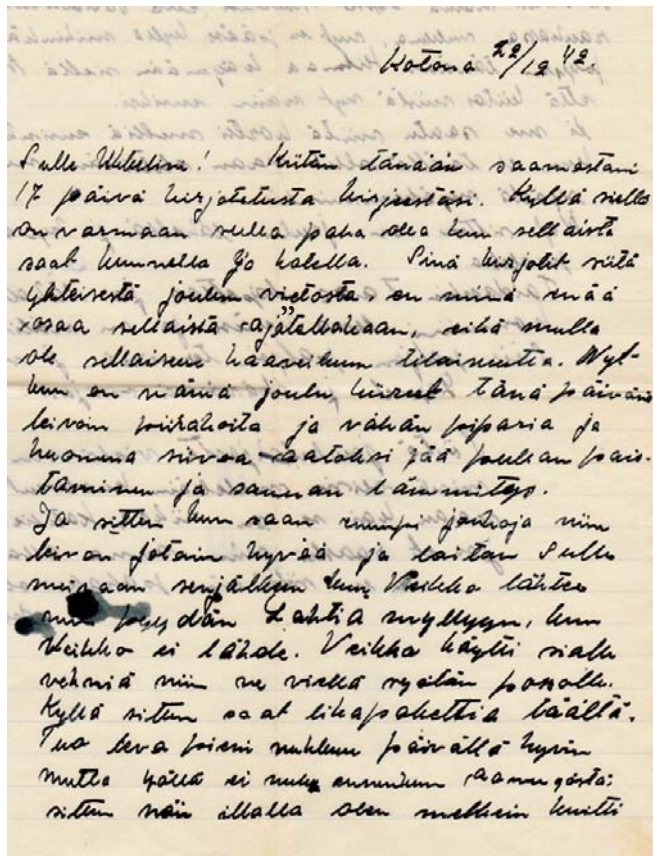 Kotona 22/12 42.
Sulle Veliseni! Kiitän tänään saamastani
17 päivä kirjotetusta kirjeestäsi. Kyllä siellä
on varmaan sulla paha olla kun sellaista
saat kuunnella jo katella. Sinä kirjolit siitä
yhteisestä joulun vietosta, en minä enää
osaa sellaista ajatellakaan, eikä mulla
ole sellaiseen haaveiluun tilaisuutta. Nyt
kun on nämä joulu kiireet tänä päivänä
leivoin piirakoita ja vähän piparia ja
huomena siivoa aatoksi jää paistaminen
taminen ja saunan lämmitys.
Ja sitten kun saan jauhoja niin
leivon jotain hyvää ja laitan Sulle
senjälkeen kun Veikko lähtee
pyydän Lahtia myllyyn, kun
Veikko ei lähde. Veikko käytti siallä
vehniä niin ne viellä syötän possulle.
Kyllä sitten saat lihapakettia täältä.
Tuo Eeva pieni nukkuu päivällä hyvin
mutta yöllä ei nuku ennenkun aamuyöstä;
sitten näin illalla olen melkein kuitti